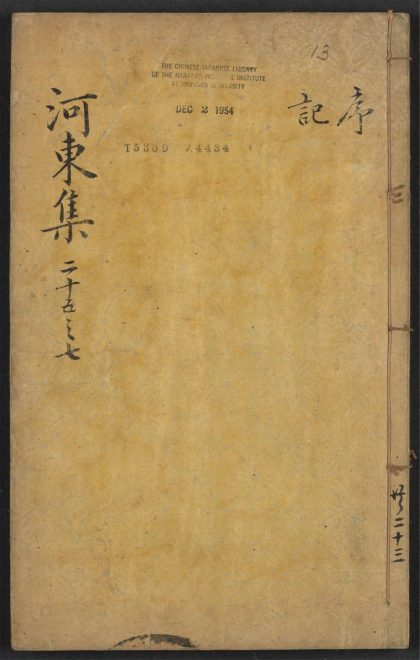 13
THE CHINESE JAPANESE LIBRARY
OF THE HARVARD YENCHING INSTITUTE
AT HARVARD UNIVERSITY
DEC 2 1954
T5309 /4434
序
記
河東集 二十五之七
二十三